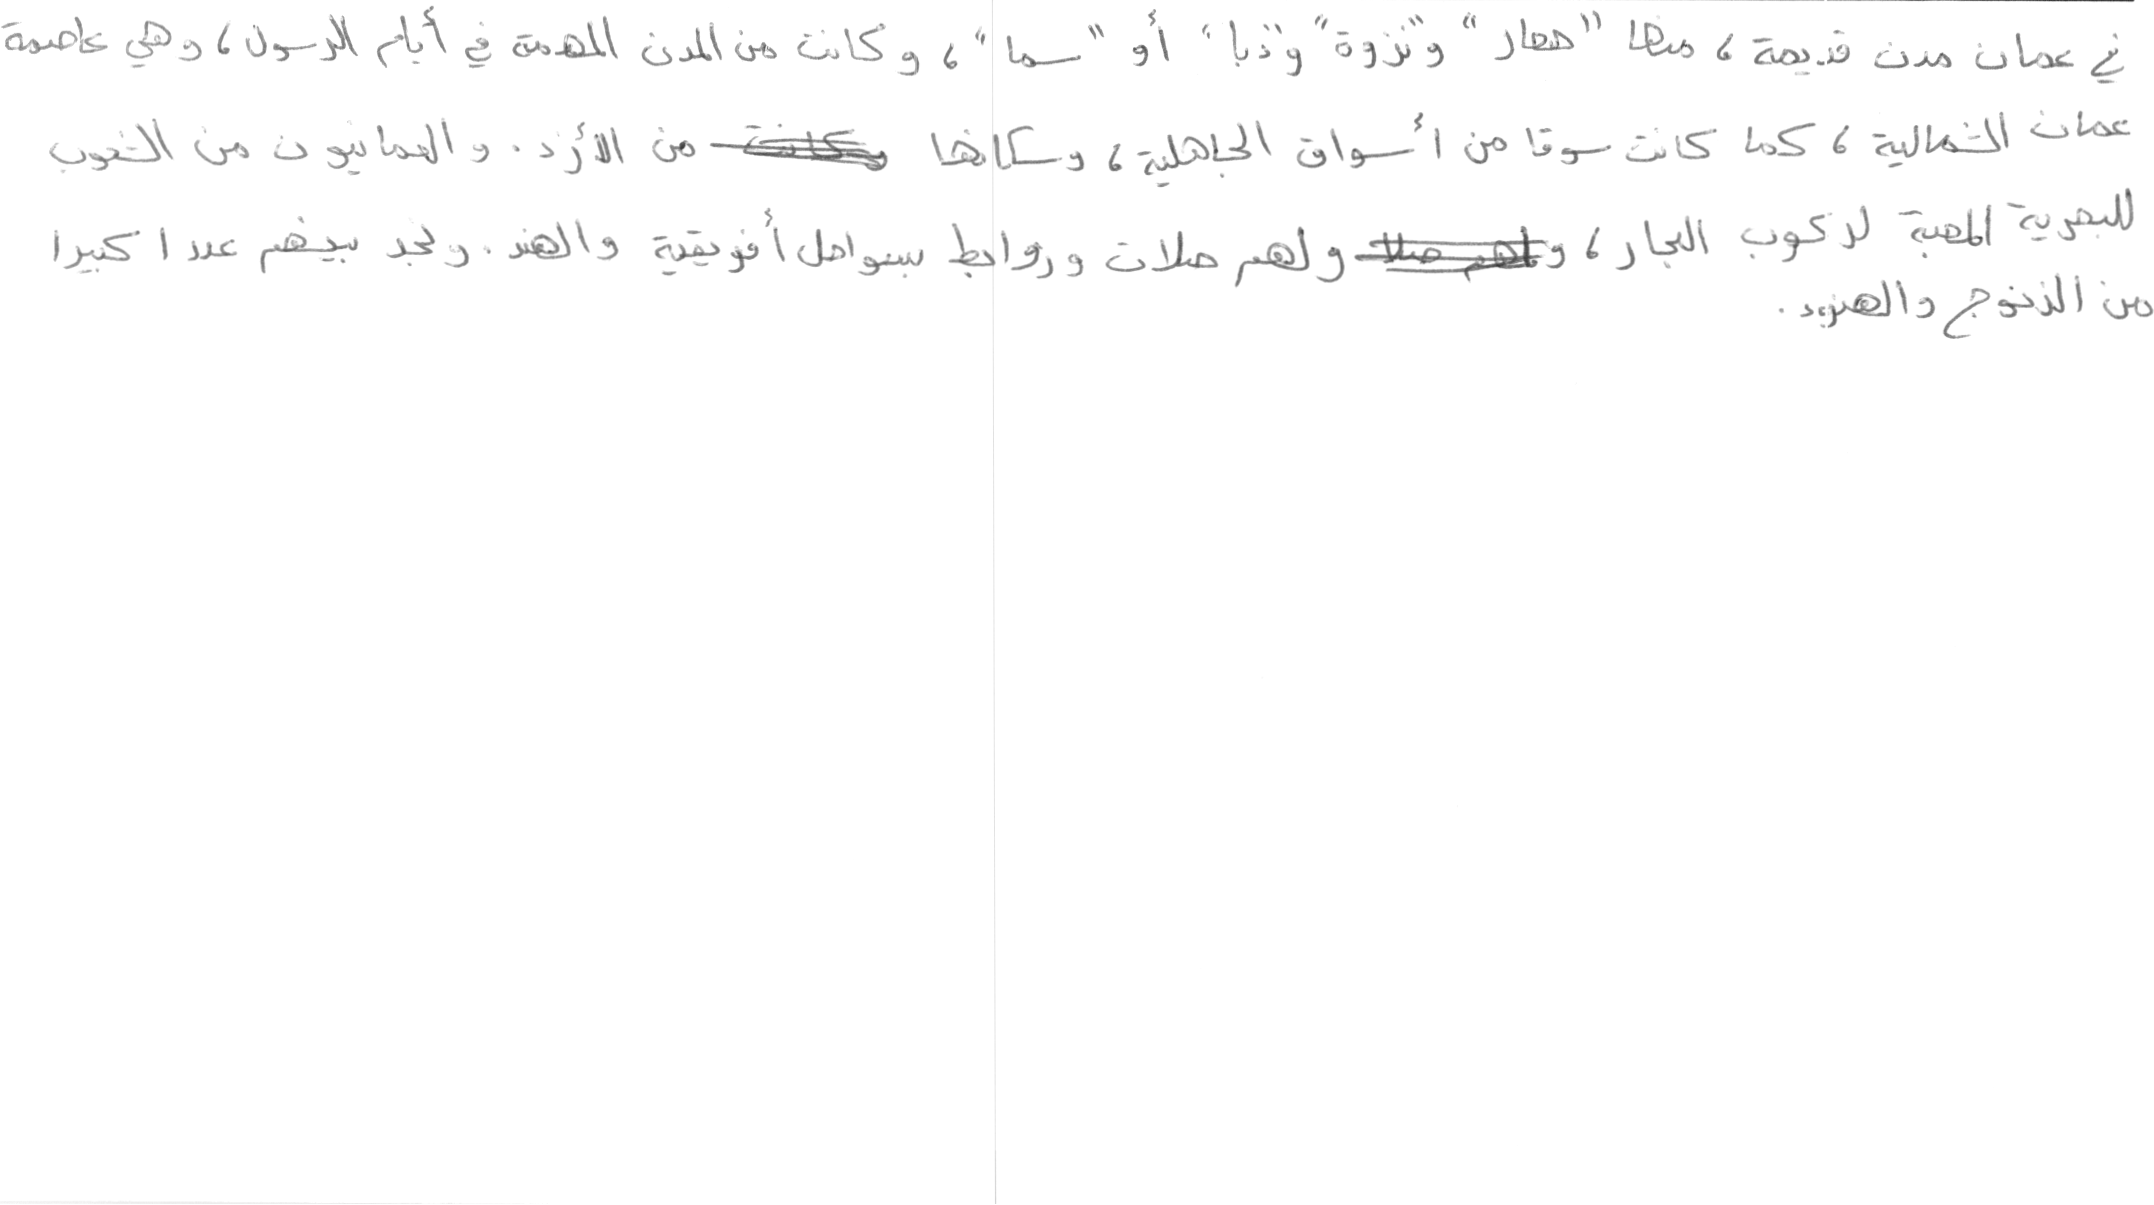 في عمان مدن قديمة، منها "صحار" و"نزوة" و"دبا" أو "سما"، وكانت من المدن المهمة في أيام الرسول، وهي عاصمة
عمان الشمالية، كما كانت سوقا من أسواق الجاهلية، وسكانها وكانت من الأزد. والعمانيون من الشعوب
للبحرية المحبة لركوب البحار، ولهم صلا ولهم صلات وروابط بسواحل أفريقية والهند. ونجد بينهم عددا كبيرا
من الزنوج والهنود.